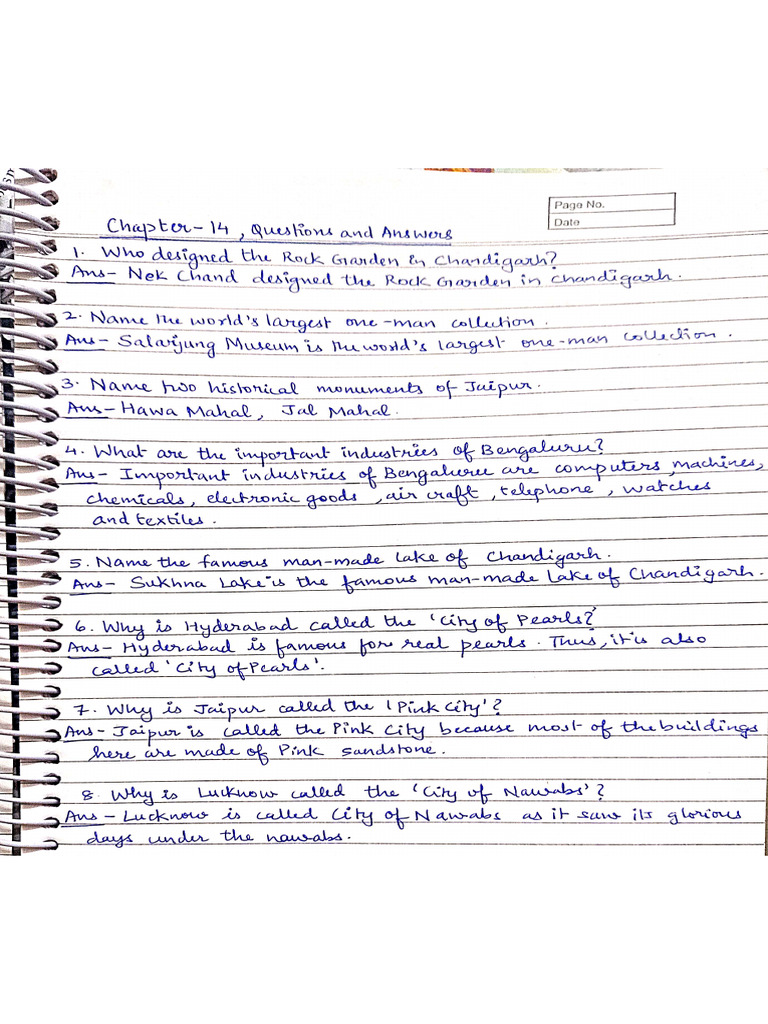 Page No.
Date
Chapter-14, Questions and Answers
1. Who designed the Rock Garden in Chandigarh?
Ans- Nek Chand designed the Rock Garden in Chandigarh.
2. Name the world's largest one-man collection.
Ans- Salarjung Museum is the world's largest one-man collection.
3. Name two historical monuments of Jaipur.
Ans- Hawa Mahal, Jal Mahal.
4. What are the important industries of Bengaluru?
Ans- Important industries of Bengaluru are computers, machines,
chemicals, electronic goods, air craft, telephone, watches
and textiles.
5. Name the famous man-made lake of Chandigarh.
Ans- Sukhna Lake is the famous man-made lake of Chandigarh.
6. Why is Hyderabad called the 'City of Pearls?'
Ans- Hyderabad is famous for real pearls. Thus, it is also
called 'City of Pearls'.
7. Why is Jaipur called the 'Pink City'?
Ans- Jaipur is called the Pink City because most of the buildings
here are made of Pink sandstone.
8. Why is Lucknow called the 'City of Nawabs'?
Ans- Lucknow is called City of Nawabs as it saw its glorious
days under the nawabs.